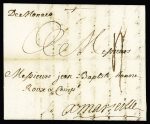 De Monaco
A Messieurs
Messieurs jean Baptiste honoré
Roux & Compe
A Marseille